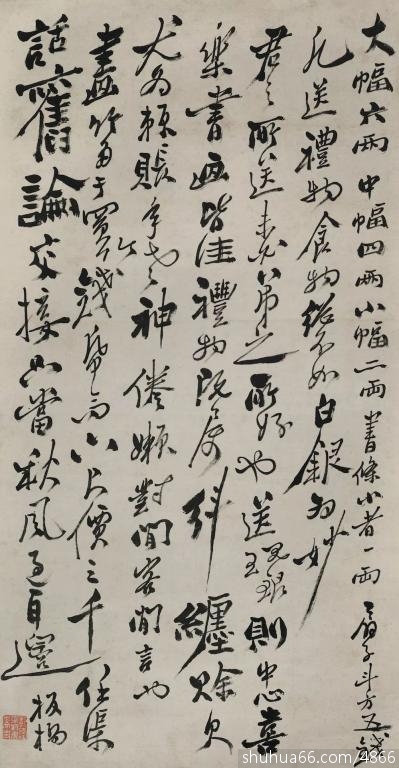 大幅六兩中幅四兩小幅二兩書條小者一兩扇子斗方五錢
凡送禮物食物總不如白銀為妙
君之所送未必弟之所好也送現銀則中心喜
樂書画皆佳禮物既属糾纏賒欠
尤為賴賬年老神倦懶對閒客閒言也
畫竹多于買竹錢紙高六尺價三千任渠
話舊論交接只當秋風過耳邊
板橋
shuhua66.com/4866